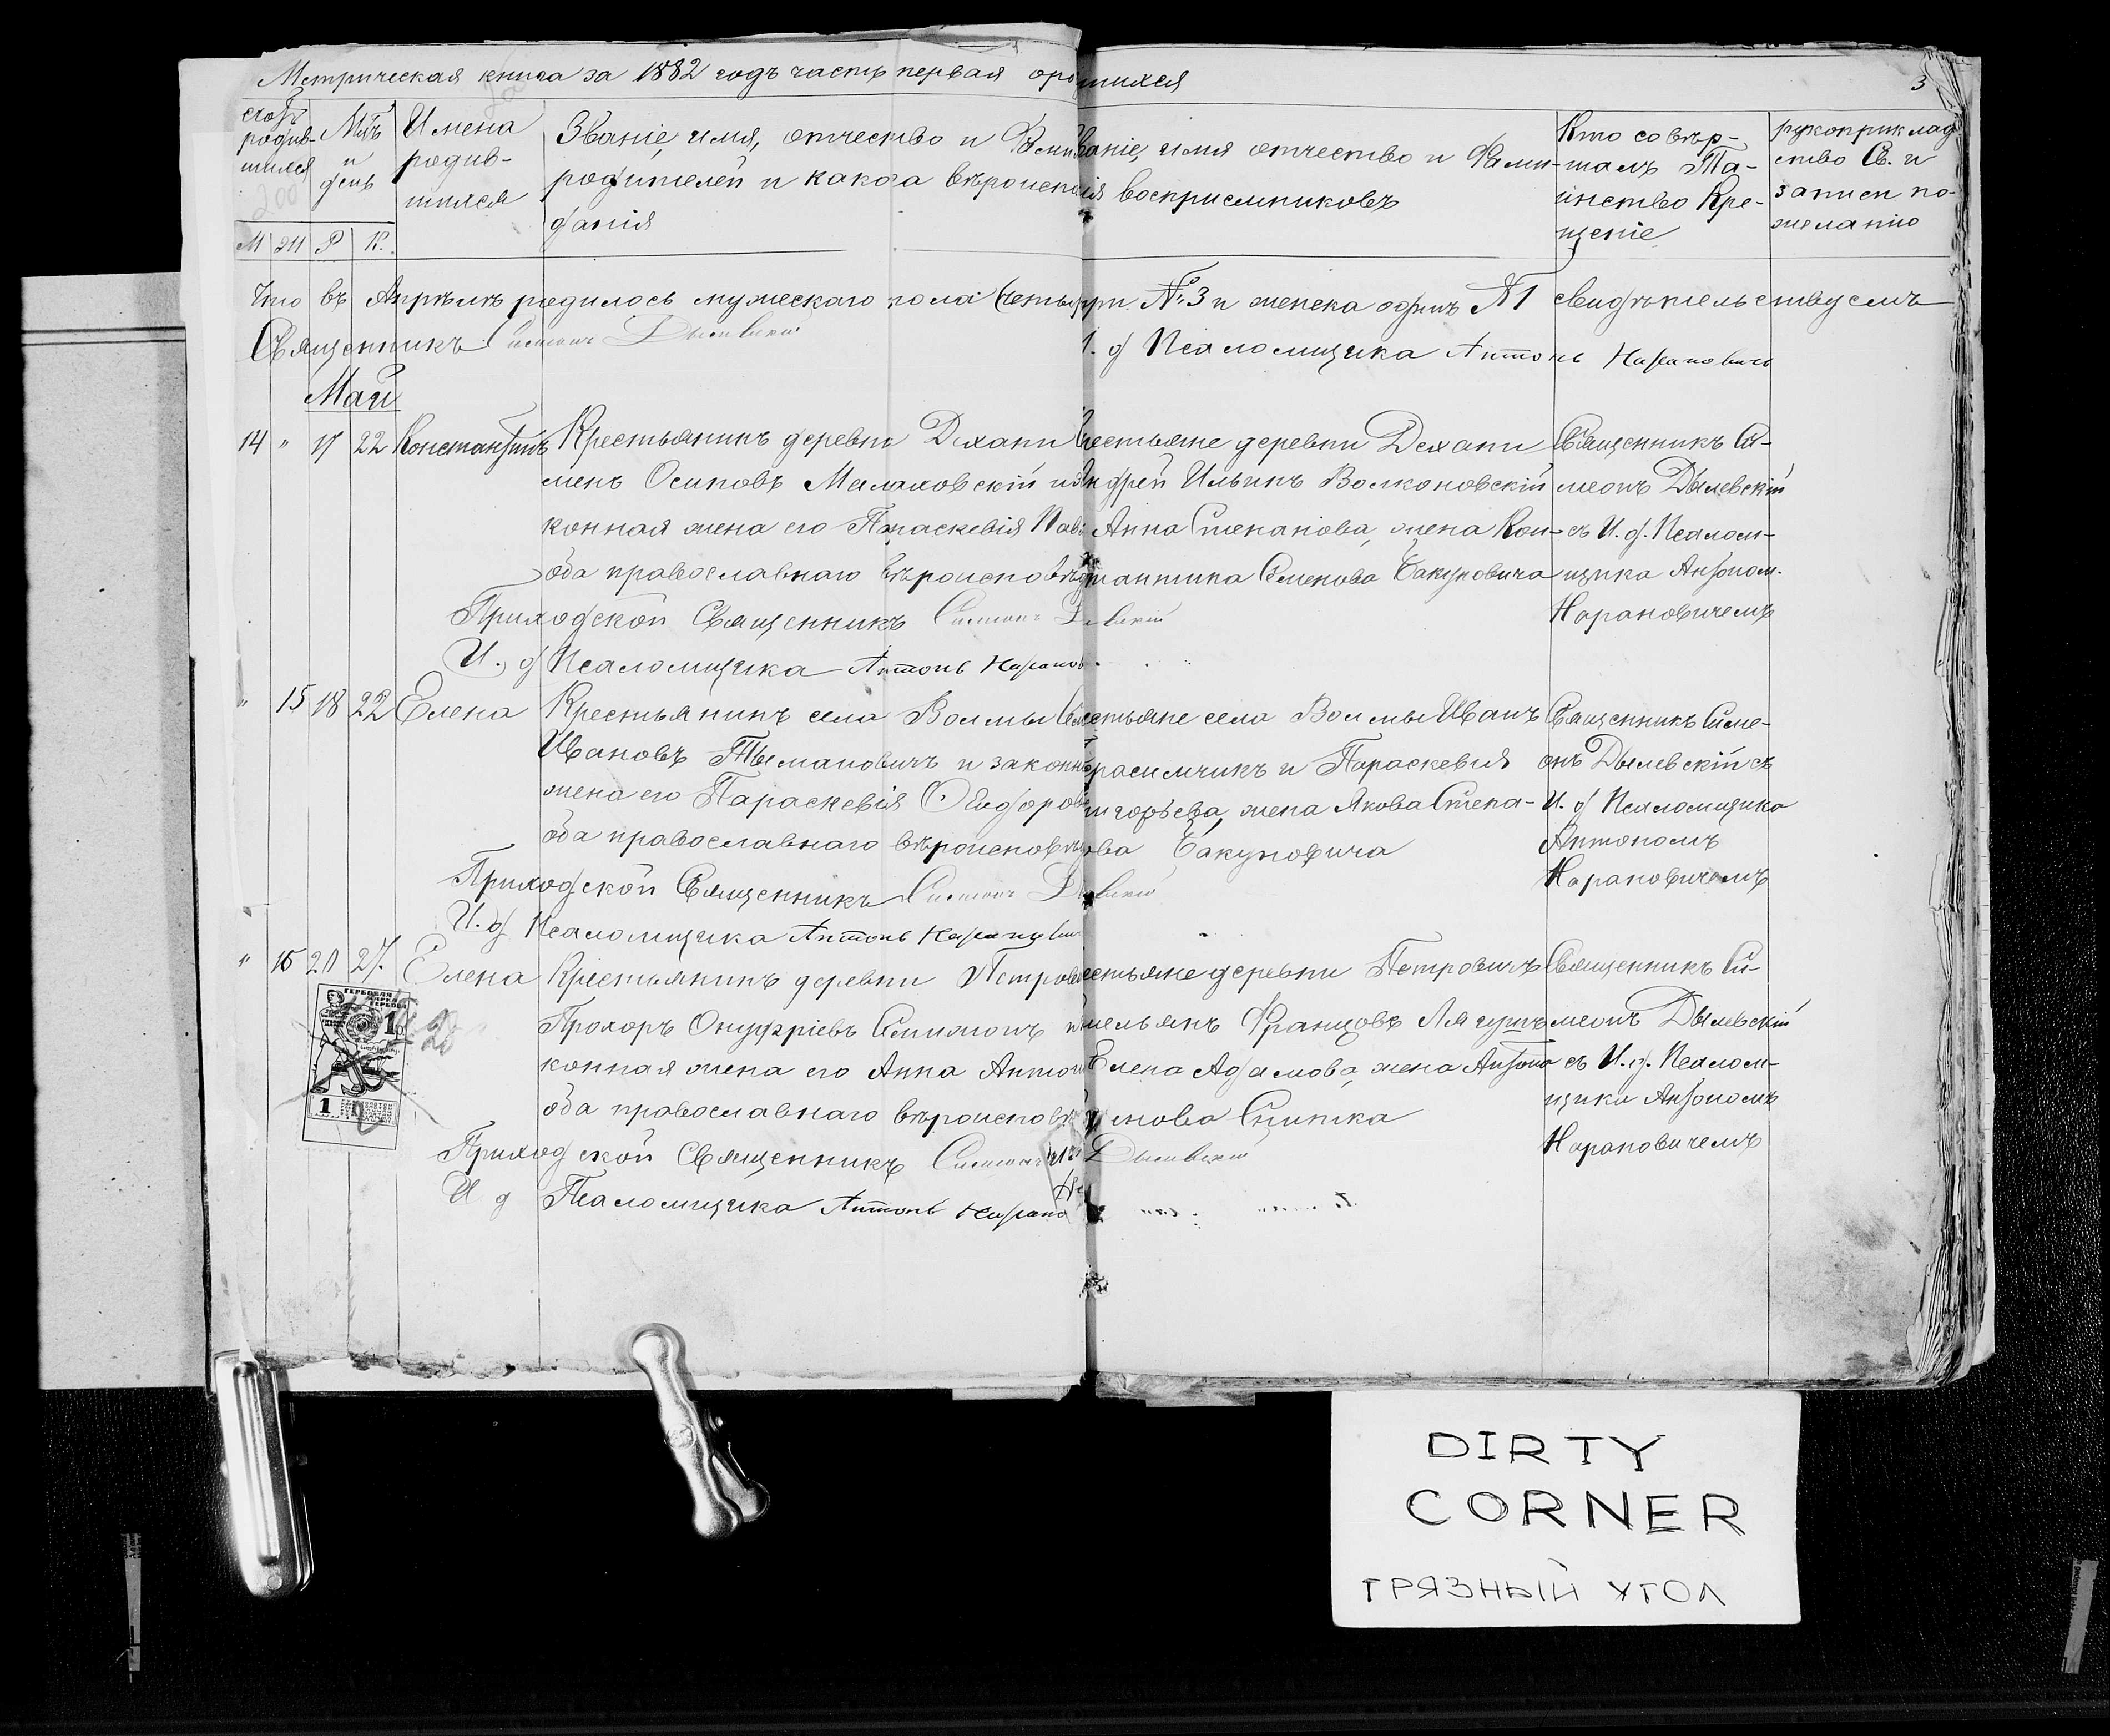 Метрическая книга за 1882 годъ часть первая о родившихся
3
счотъ родив-шихся
Мцъ и день
Имена родив-шихся
Званіе, имя, отчество и Фами
родителей и какова вѣроиспо
данія
Званіе, имя отчество и Фами-
лія воспріемниковъ
Кто совер-
шалъ Та-
инство Кре-
щеніе
рукоприклад
ство Св. и
записи по-
желанію
М Ж Р К.
Что въ Апрѣлѣ родилось мужескаго пола четыри № 3 и женска одинъ № 1 свидѣтельствуемъ
Священникъ Симеонъ Дылевскій
И. д Псаломщика Антонъ Нарановичъ
Май
14 " 17 22 Константинъ
Крестьянинъ деревни Дехани
менъ Осиповъ Малаховскій и за
конная жена его Параскевія Пав
оба православнаго вѣроисповѣд
Крестьяне деревни Дехани
Андрей Ильинъ Волконовскій
Анна Степанова, жена Кон-
стантина Семенова Бакуновича
Священникъ Си-
меонъ Дылевскій
съ И. д. Псалом-
щика Антоном.
Нарановичемъ
Приходской Священникъ Симеонъ Дылевскій
И. д Псаломщика Антонъ Наранов
" 15 18 22 Елена
Крестьянинъ села Волмы
Ивановъ Тымановичъ и законн
жена его Параскевія Ѳедоров
оба православнаго вѣроисповѣд
Крестьяне села Волмы Иванъ
Герасимчикъ и Параскевія
Григорьева, жена Якова Степа-
нова Бакуновича
Священникъ Симе-
онъ Дылевскій съ
И. д Псаломщика
Антономъ
Нарановичемъ
Приходской Священникъ Симеонъ Дылевскій
И. д Псаломщика Антонъ Наранович
" 16 20 27. Елена
Крестьянинъ деревни Петрови
Прохоръ Онуфріевъ
конная жена его Анна Антон
оба православнаго вѣроисповѣ
Крестьяне деревни Петровичъ
Емельянъ Францовъ
Елена Адамова, жена Антона
Снитка
Священникъ Си-
меонъ Дылевскій
съ И. д. Псалом-
щика Антономъ
Нарановичемъ
ГЕРБОВАЯ МАРКА
1
20
1
Приходской Священникъ Симеонъ Дылевскій
И д Псаломщика Антонъ Нарано
DIRTY
CORNER
ГРЯЗНЫЙ УГОЛ